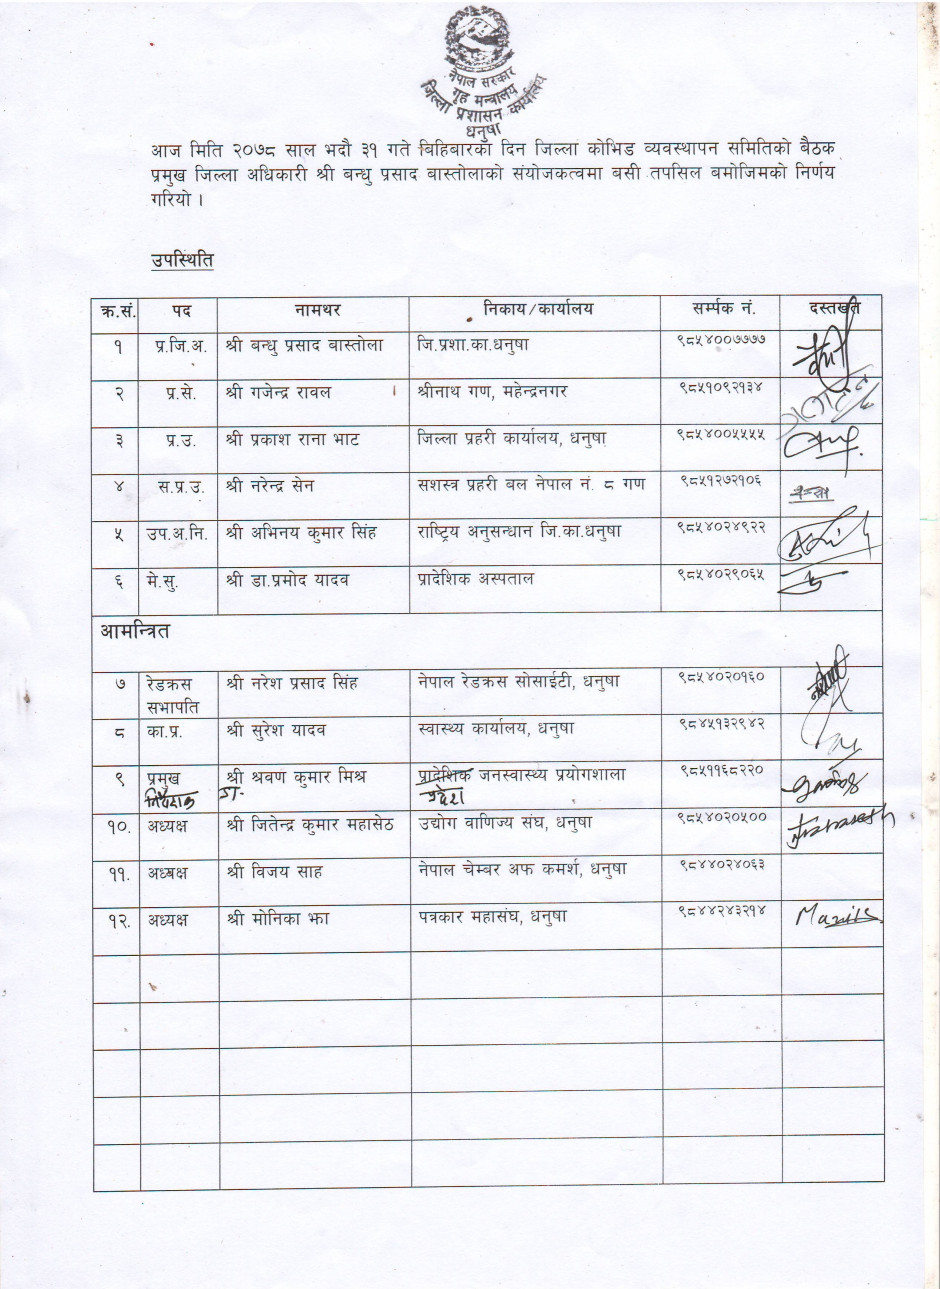 नेपाल सरकार
गृह मन्त्रालय
जिल्ला प्रशासन कार्यालय
धनुषा
आज मिति २०७८ साल भदौ ३१ गते बिहिबारका दिन जिल्ला कोभिड व्यवस्थापन समितिको बैठक
प्रमुख जिल्ला अधिकारी श्री बन्धु प्रसाद बास्तोलाको संयोजकत्वमा बसी तपसिल बमोजिमको निर्णय
गरियो ।
उपस्थिति
क्र.सं. पद नामथर निकाय/कार्यालय सर्म्पक नं. दस्तखत
१ प्र.जि.अ. श्री बन्धु प्रसाद बास्तोला जि.प्रशा.का.धनुषा ९८५४००७७७७
२ प्र.से. श्री गजेन्द्र रावल श्रीनाथ गण, महेन्द्रनगर ९८५१०९२१३४
३ प्र.उ. श्री प्रकाश राना भाट जिल्ला प्रहरी कार्यालय, धनुषा ९८५४००५५५५
४ स.प्र.उ. श्री नरेन्द्र सेन सशस्त्र प्रहरी बल नेपाल नं. ८ गण ९८५१२७२१०६
५ उप.अ.नि. श्री अभिनय कुमार सिंह राष्ट्रिय अनुसन्धान जि.का.धनुषा ९८५४०२४९२२
६ मे.सु. श्री डा.प्रमोद यादव प्रादेशिक अस्पताल ९८५४०२९०६५
आमन्त्रित
७ रेडक्रस श्री नरेश प्रसाद सिंह नेपाल रेडक्रस सोसाईटी, धनुषा ९८५४०२०१६०
सभापति
८ का.प्र. श्री सुरेश यादव स्वास्थ्य कार्यालय, धनुषा ९८४५१३२९४२
९ प्रमुख श्री श्रवण कुमार मिश्र प्रादेशिक जनस्वास्थ्य प्रयोगशाला ९८५११६८२२०
निर्देशक डा. प्रदेश
१०. अध्यक्ष श्री जितेन्द्र कुमार महासेठ उद्योग वाणिज्य संघ, धनुषा ९८५४०२०५००
११. अध्यक्ष श्री विजय साह नेपाल चेम्बर अफ कमर्श, धनुषा ९८४४०२४०६३
१२. अध्यक्ष श्री मोनिका झा पत्रकार महासंघ, धनुषा ९८४४२४३२१४